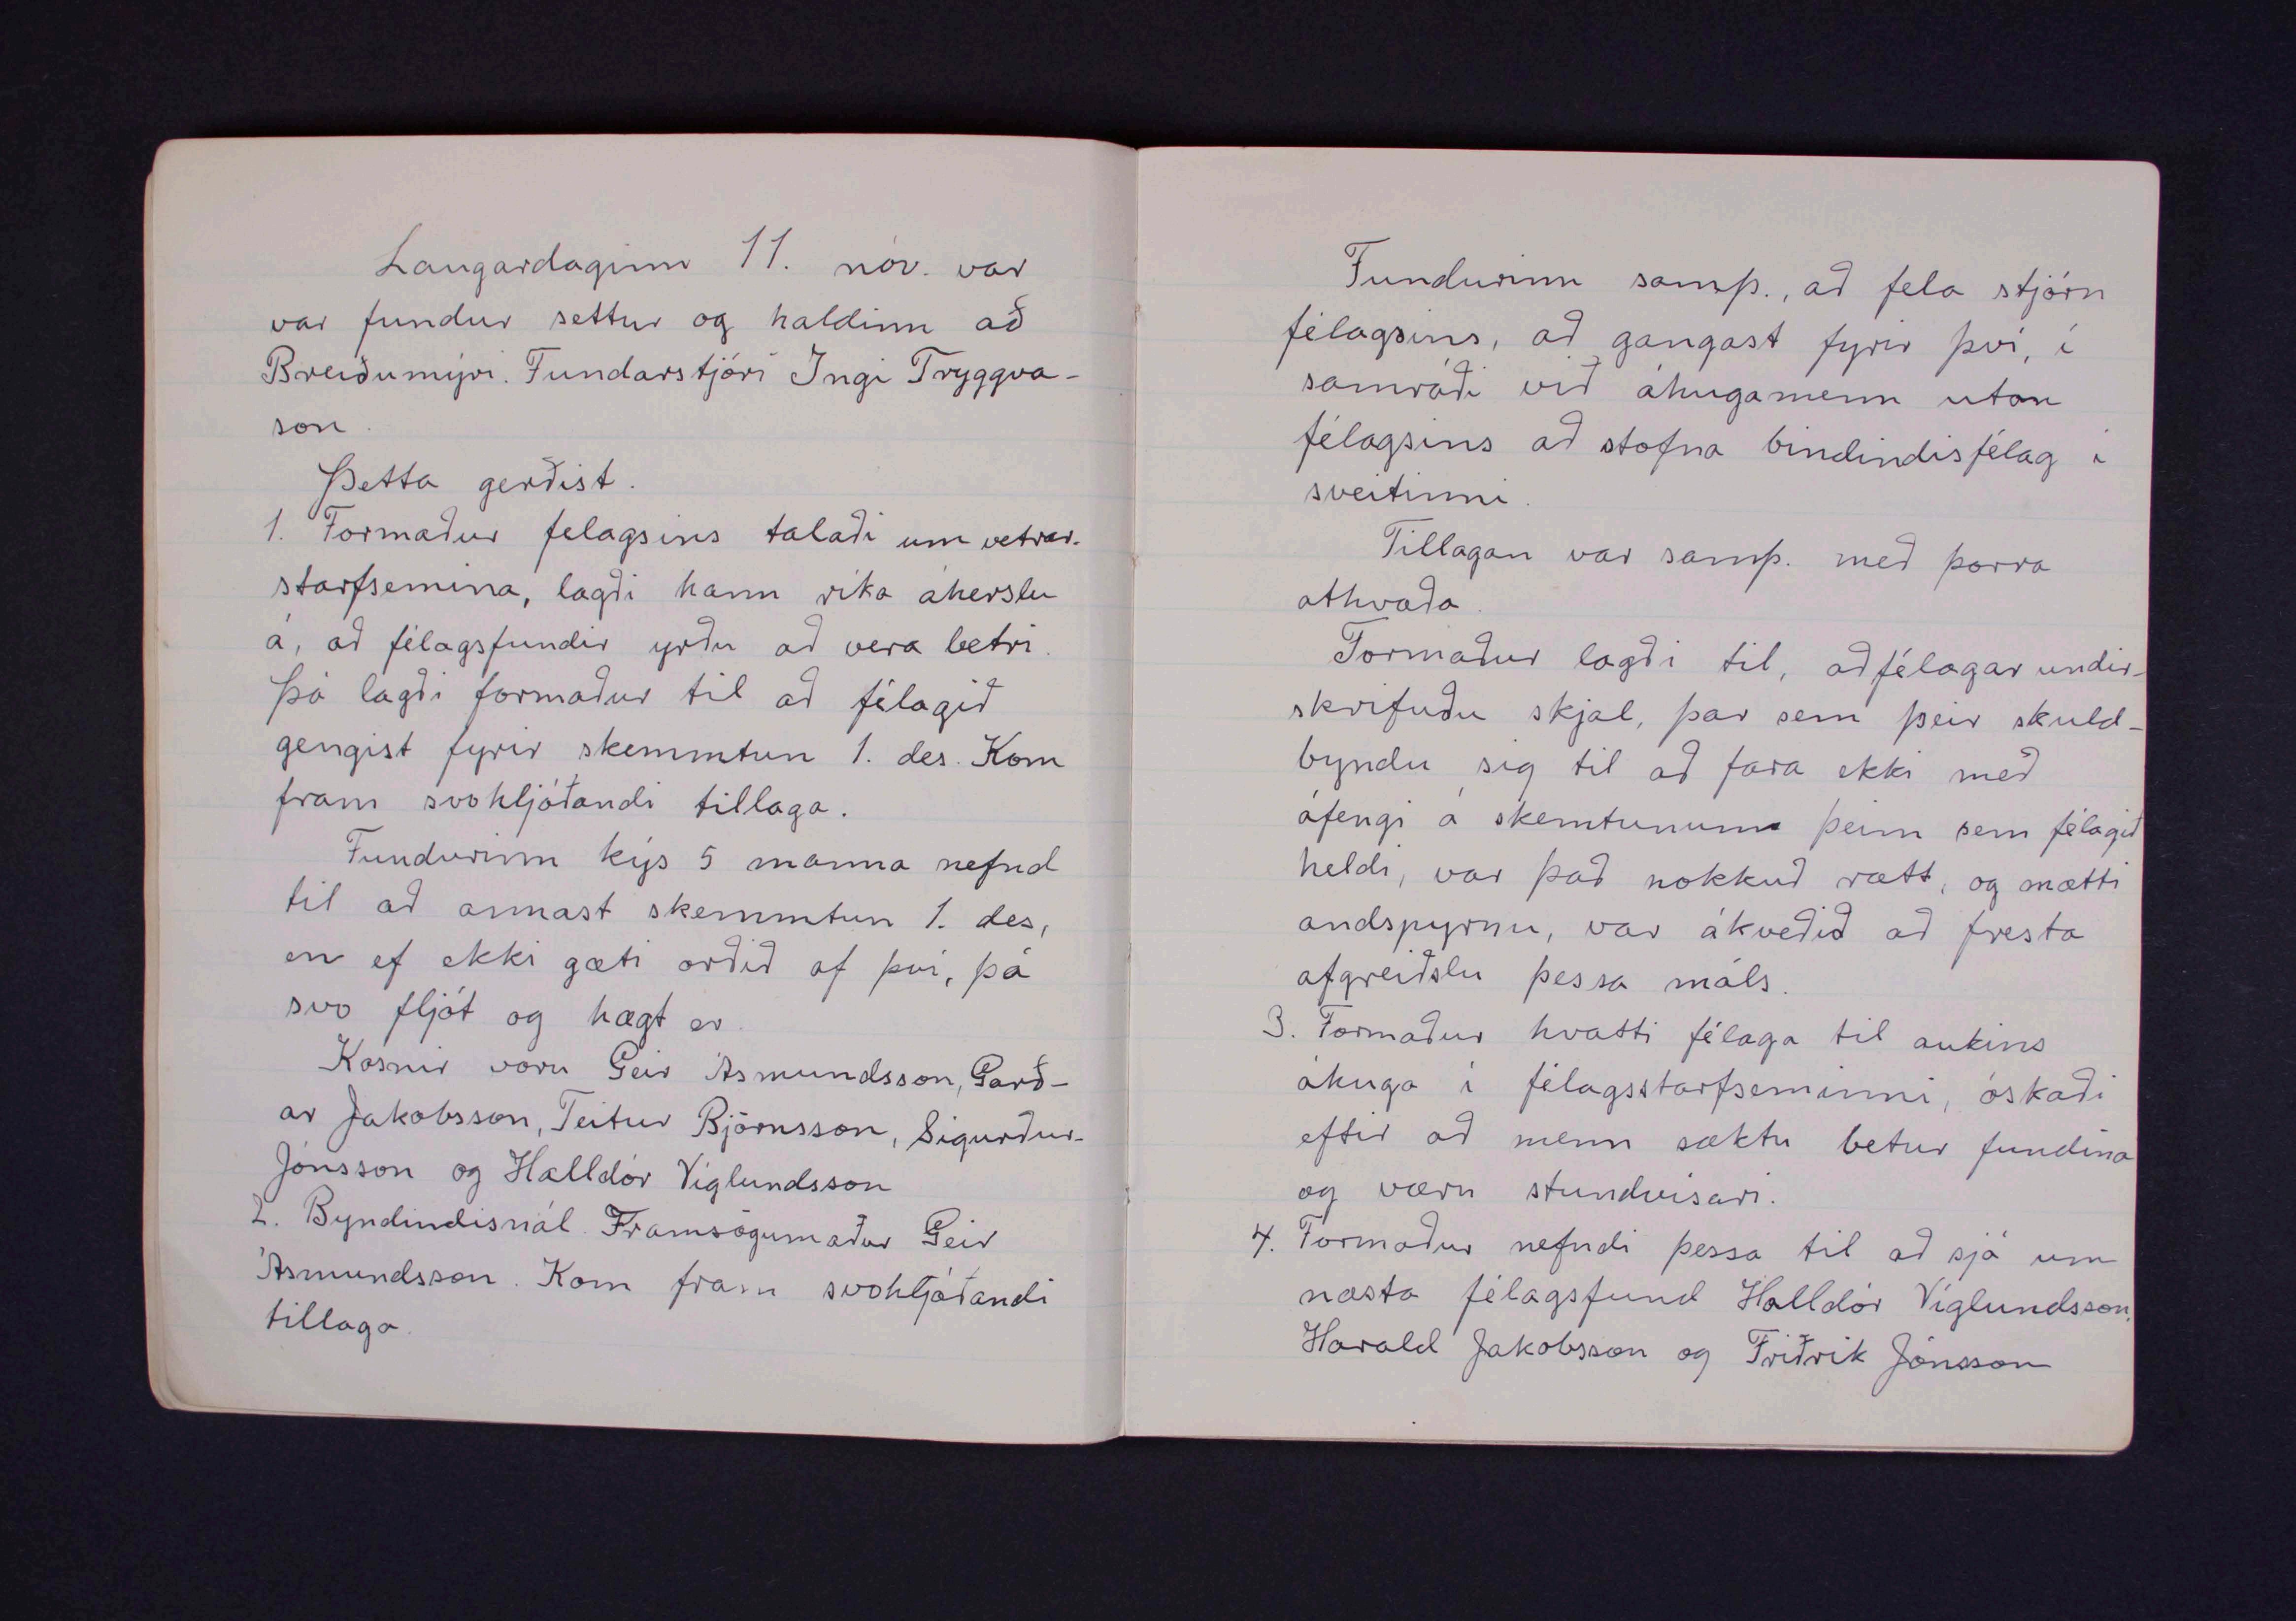 Laugardaginn 11. nóv. var
var fundur settur og haldinn að
Breiðumýri. Fundarstjóri Ingi Tryggva-
son.
Þetta gerðist.
1. Formaður felagsins talaði um vetrar-
starfsemina, lagði hann ríka áherslu
á, að félagsfundir yrðu að vera betri.
Þá lagði formaður til að félagið
gengist fyrir skemmtun 1. des. Kom
fram svohljóðandi tillaga.
Fundurinn kýs 5 manna nefnd
til að annast skemmtun 1. des,
en ef ekki gæti orðið af því, þá
svo fljót og hægt er.
Kosnir voru Geir Ásmundsson, Garð-
ar Jakobsson, Teitur Björnsson, Sigurður-
Jónsson og Halldór Víglundsson
2. Byndindismál. Framsögumaður Geir
Ásmundsson. Kom fram svohljóðandi
tillaga.
Fundurinn samþ., að fela stjórn
félagsins, að gangast fyrir því, í
samráði við áhugamenn utan
félagsins að stofna bindindisfélag í
sveitinni.
Tillagan var samþ. með þorra
athvaða.
Formaður lagði til, að félagar undir-
skrifuðu skjal, þar sem þeir skuld-
byndu sig til að fara ekki með
áfengi á skemtununum þeim sem félagið
heldi, var það nokkuð rætt, og mætti
andspyrnu, var ákveðið að fresta
afgreiðslu þessa máls.
3. Formaður hvatti félaga til aukins
áhuga í félagsstarfseminni, óskaði
eftir að menn sæktu betur fundina
og væru stundvísari.
4. Formaður nefndi þessa til að sjá um
næsta félagsfund Halldór Víglundsson,
Harald Jakobsson og Friðrik Jónsson